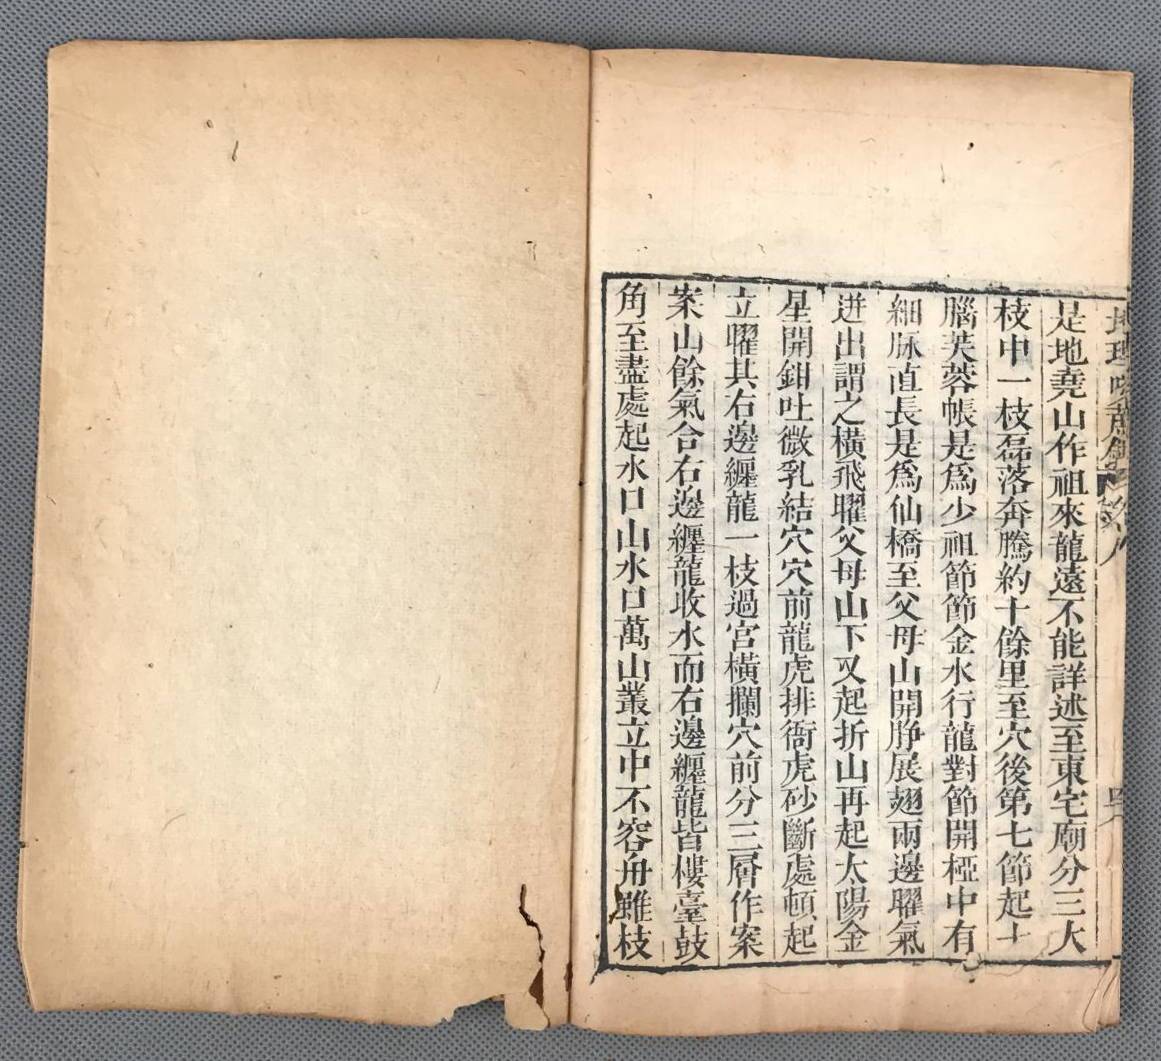 地理啖蔗錄 卷八
是地堯山作祖來龍遠不能詳述至東宅廟分三大
枝中一枝磊落奔騰約十餘里至穴後第七節起
腦芙蓉帳是爲少祖節節金水行龍對節開椏中有
細脉直長是爲仙橋至父母山開脝展翅兩邊曜氣
迸出謂之橫飛曜父母山下又起折山再起太陽金
星開鉗吐微乳結穴穴前龍虎排衙虎砂斷處頓起
立曜其右邊纏龍一枝過宮橫攔穴前分三層作案
案山餘氣合右邊纏龍收水而右邊纏龍皆樓臺鼓
角至盡處起水口山水口萬山叢立中不容舟雖枝